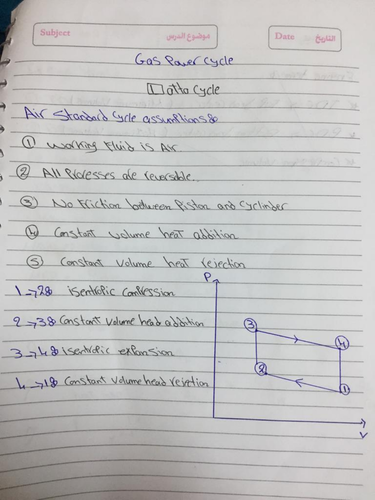 Subject موضوع الدرس Date التاريخ
Gas Power Cycle
1 otto Cycle
Air Standard Cycle assumptions:
① Working Fluid is Air
② All Processes are reversible..
③ No Friction between Piston and Cyclinder
④ Constant volume heat addition
⑤ Constant volume heat rejection
1→2: isentropic compression
2→3: Constant volume head addition
3→4: isentropic expansion
4→1: Constant volume head rejection
P
3 4
2
1
V